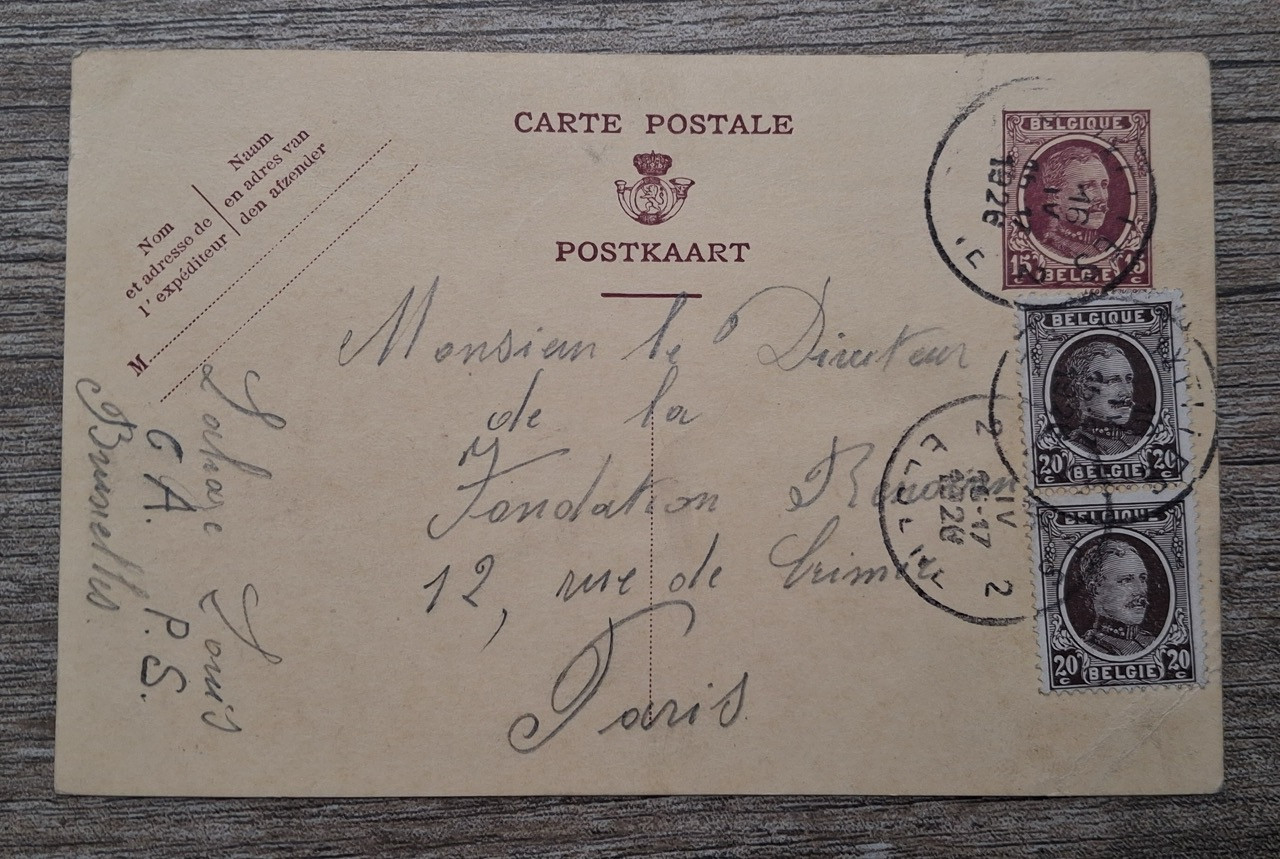 CARTE POSTALE
POSTKAART
Nom
et adresse de
l'expéditeur
Naam
en adres van
den afzender
M
BELGIQUE
15 c BELGIE 15 c
BELGIQUE
20 c BELGIE 20 c
BELGIQUE
20 c BELGIE 20 c
16
IV
1926
IV
17
Monsieur le Directeur
de la
Fondation
12, rue de
Paris
Louis
C A. P.S.
Bruxelles